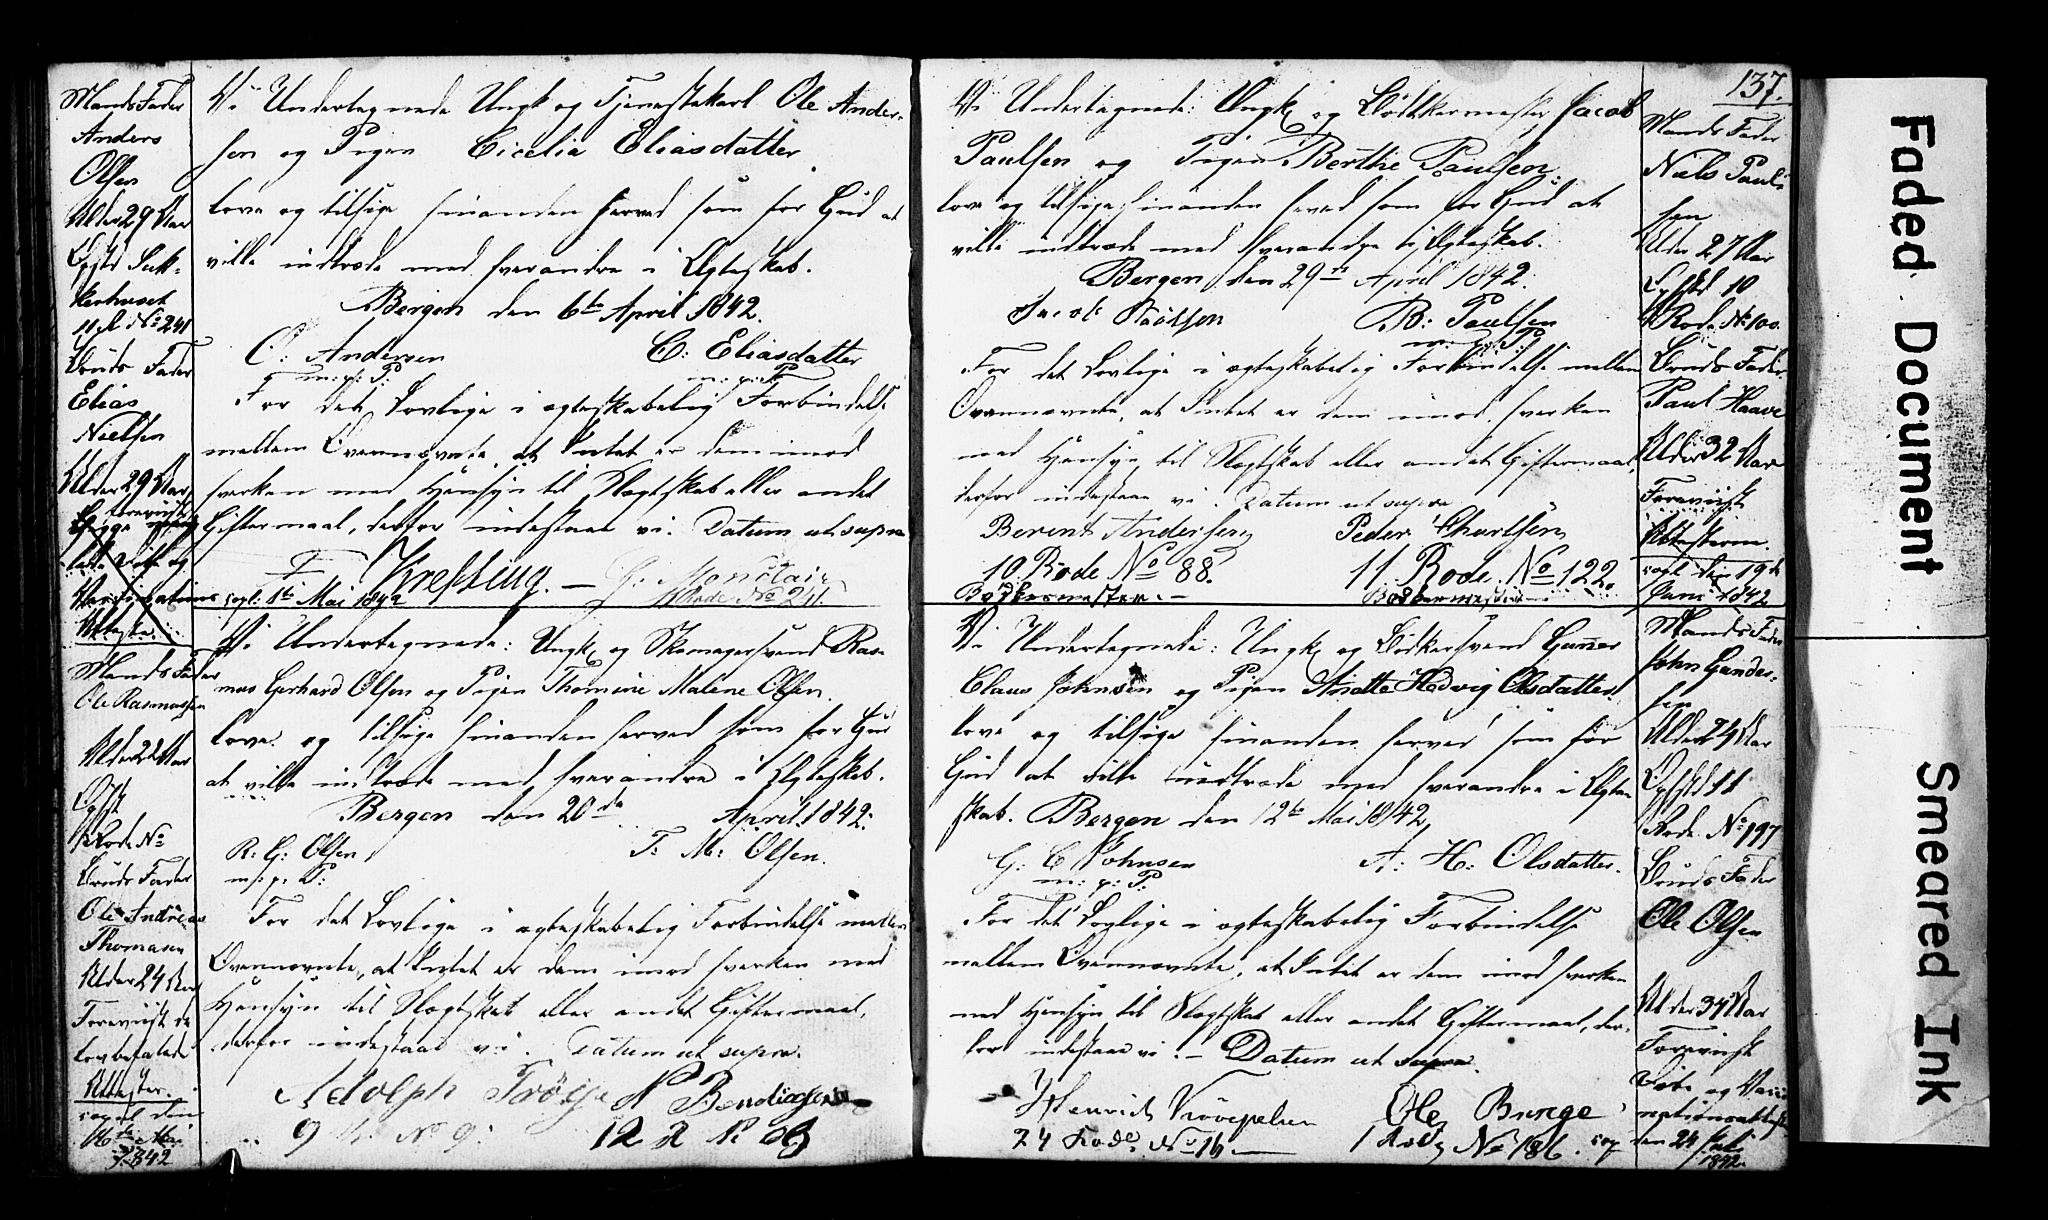 Mands Fader
Anders
Olsen
Alder 29 Aar
Opst Suk-
kerhuset
11 R No 241
Bruds Fader
Elias
Nielsen
Alder 29 Aar
Foreviist
begge
lovlig Døbe og
Vaccinations
Attester.
Vi Undertegnede Ungk og Tjenestekarl Ole Ander-
sen og Pigen Cicelia Eliasdatter
love og tilsige hinanden herved som for Gud at
ville indtræde med hverandre i Ægteskab.
Bergen den 6te April 1842.
O: Andersen C: Eliasdatter
m: p: P: m: p: P:
For det Lovlige i ægteskabelig Forbindelse
mellem Ovennævnte, at Intet er dem imod
hverken med Hensyn til Slægtskab eller andet
Giftermaal, derfor indestaae vi. Datum ut supra
F Krefting. — G: Monclair
copl: 1te Mai 1842 11 Rode No 241.
Mands Fader
Ole Rasmussen
Alder 22 Aar
Opst
Rode No
Bruds Fader
Ole Andreas
Thomasen
Alder 24 Aar
Foreviist de
lovbefalede
Attester.
copul den
16de Mai
1842
Vi Undertegnede: Ungk og Skomagersvend Ras-
mus Gerhard Olsen og Pigen Thomine Malene Olsen.
love og tilsige hinanden herved som for Gud
at ville indtræde med hverandre i Ægteskab.
Bergen den 20de April 1842.
R: G: Olsen T: M: Olsen.
m: p: P:
For det Lovlige i ægteskabelig Forbindelse mellem
Ovennævnte, at Intet er dem imod hverken med
Hensyn til Slægtskab eller andet Giftermaal,
derfor indestaae vi. Datum ut supra.
Adolph Tröije N Bendixsen
9 R. No 9: 12 R No 63
137.
Vi Undertegnede: Ungk og Bødkkermester Jacob
Paulsen og Pigen Berthe Paulsen.
love og tilsige hinanden herved som for Gud at
ville indtræde med hverandre i Ægteskab.
Bergen den 29de April 1842.
Jacob Paulsen B: Paulsen
m: p: P:
For det Lovlige i ægteskabelig Forbindelse mellem
Ovennævnte, at Intet er dem imod hverken
med Hensyn til Slægtskab eller andet Giftermaal,
derfor indestaae vi. Datum ut supra
Berent Andersen Peder Charlsen
10 Rode No 88. 11 Rode No 122.
Bødkermester. — Bødkermester —
Mands Fader
Niels Paul-
sen
Alder 27 Aar
Opstd 10
Rode No 100.
Bruds Fader
Paul Haave
Alder 32 Aar
Foreviist
Attesterne.
copl. den 19de
Juni 1842
Vi Undertegnede: Ungk og Bødkersvend Gunner
Claus Johnsen og Pigen Anette Hedvig Olsdatter.
love og tilsige hinanden herved som for
Gud at ville indtræde med hverandre i Ægte-
skab. Bergen den 12te Mai 1842,
G: C Johnsen A: H: Olsdatter.
m: p: P:
For det Lovlige i ægteskabelig Forbindelse
mellem Ovennævnte, at Intet er dem imod hverken
med Hensyn til Slægtskab eller andet Giftermaal, der-
for indestaae vi. — Datum ut supra.
Henrich Ole Bunge
24 Rode No 16 — 1 Rode No 186. cop
Mands Fader
John Gunder-
sen
Alder 24 Aar
Opstd 11
Rode No 197
Bruds Fader
Ole Olsen
Alder 34 Aar
Foreviist
Døbe og Vacci
nationsattest
den 24 Juli
1842.
Faded Document
Smeared Ink